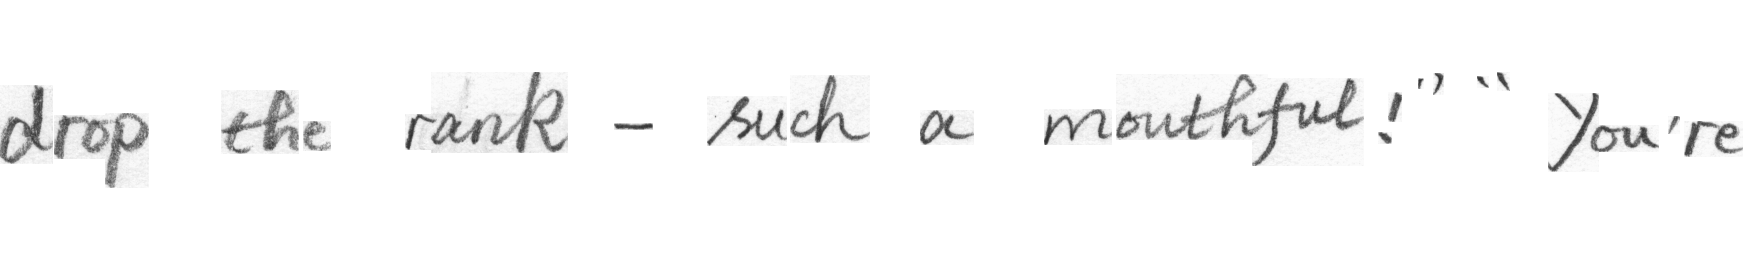 drop the rank - such a mouthful!" "You're